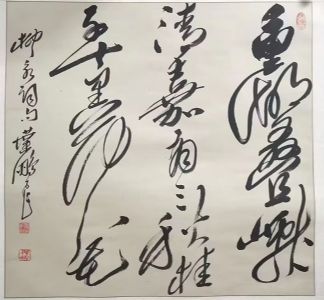 重湖叠巘
清嘉有三秋桂
子十里荷花
柳永词句